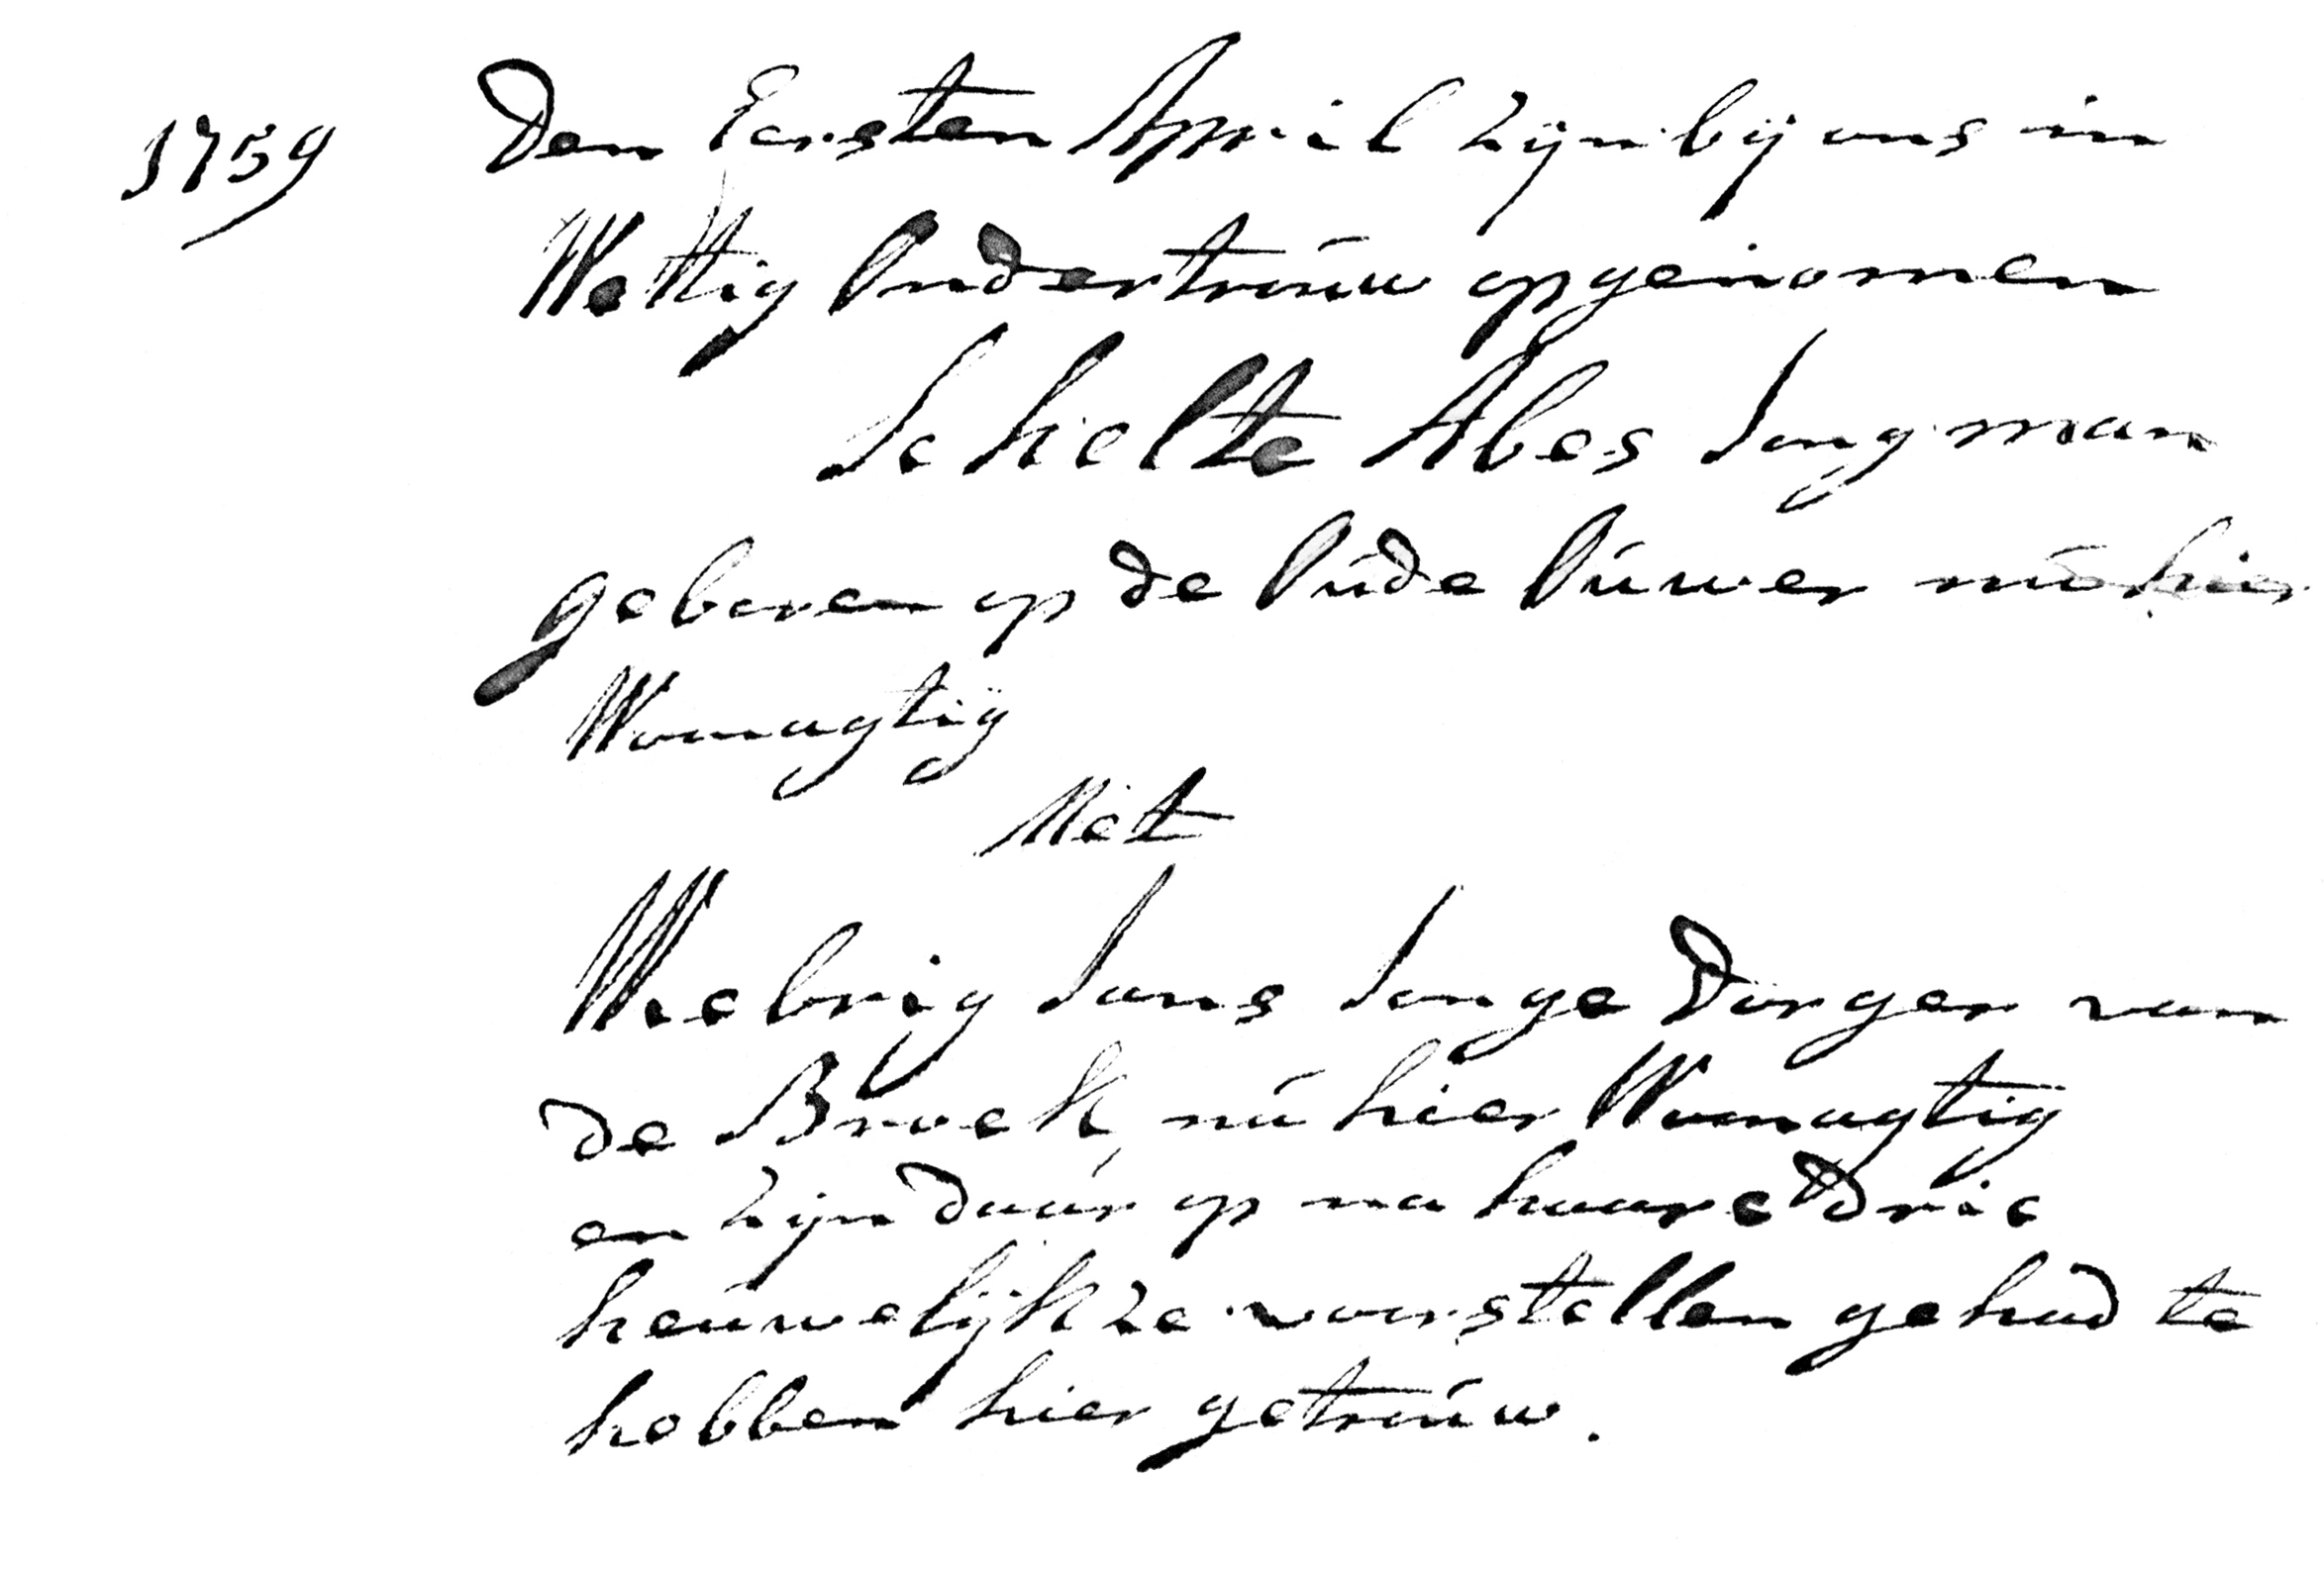 1759 Den Eersten April zijn bij ons in
Wettig Ondertrouw opgenomen
Schelte Abes Jongman
geboren op de Oude Ouwer nu hier
Womagtig
Met
Wiebrig Jans Jonge Dorger van
de Broek, nu hier Womagtig
en zijn daar op na haare drie
houwelijkze voorstellen gehad te
hebben hier getrouw.